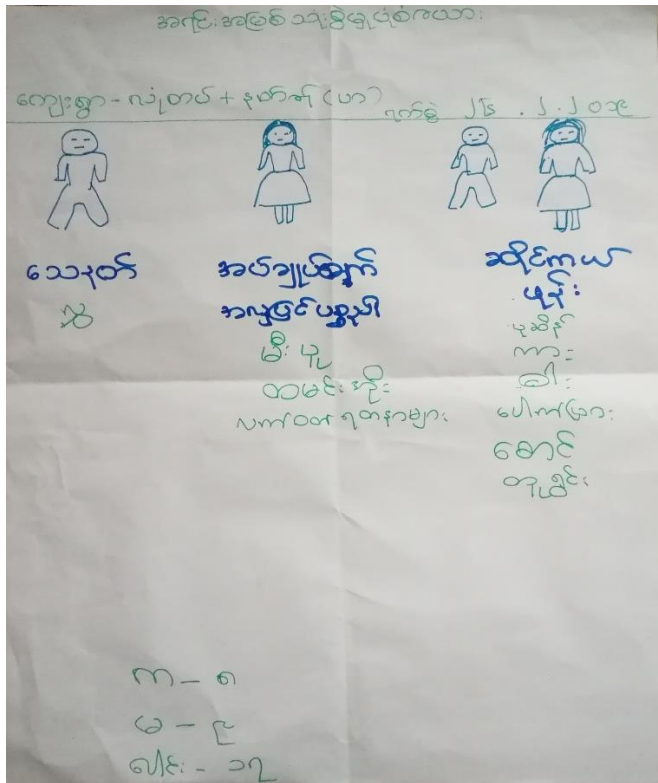 အရင်းအမြစ်သုံးစွဲမှုပုံစံဇယား
ကျေးရွာ - လုံတယ် + နမ်တ (ဟာ)
ရက်စွဲ ၂၆ . ၂ . ၂၀၁၉
သေနတ်
လွှ
အပ်ချုပ်စက်
အလှပြင်ပစ္စည်း
မီးပူ
ထမင်းအိုး
လက်ဝတ်ရတနာများ
ဆိုင်ကယ်
ဖုန်း
ပုဆိန်
ကား
ဓါး
ပေါက်ပြား
စောင်
တူရွင်း
ကာ - ၈
မ - ၉
ပေါင်း - ၁၇